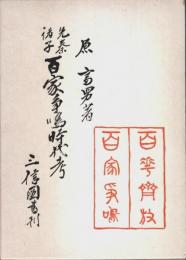 原 富男著
先秦
諸子
百家争鳴時代考
三信圖書刊
百花齊放
百家爭鳴